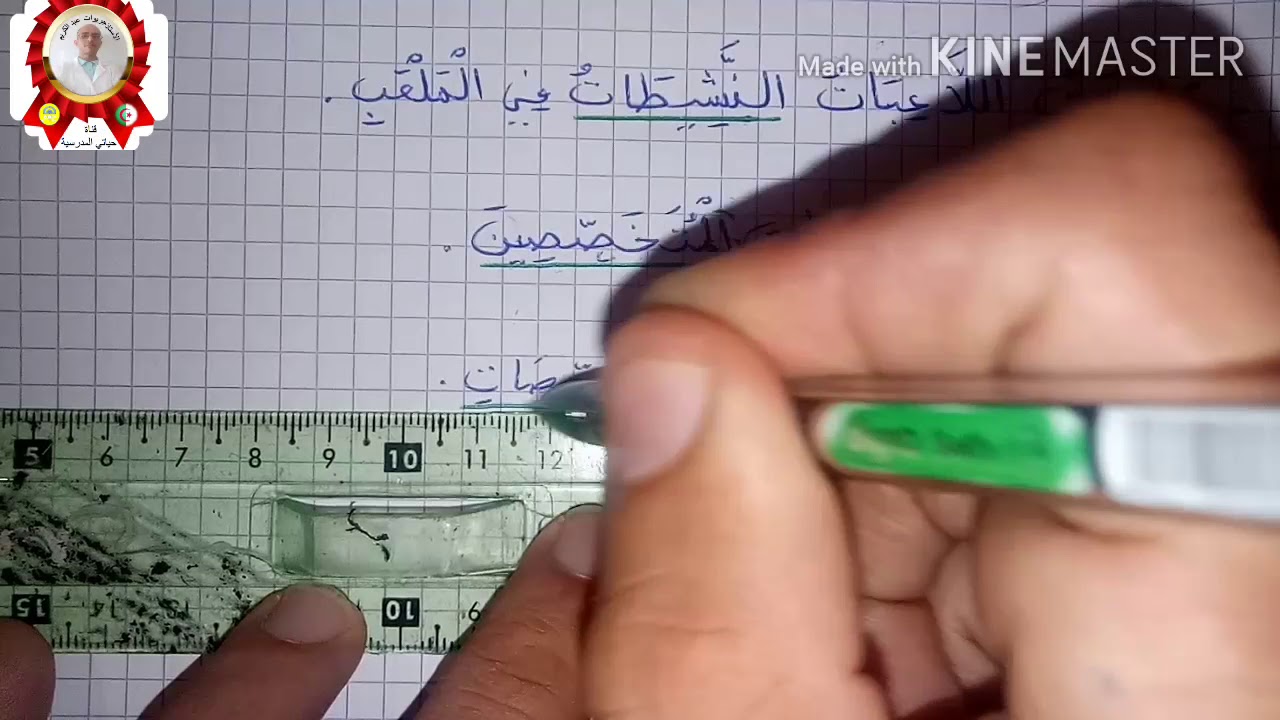 الأستاذ حريوات عبد الكريم
قناة
حياتي المدرسية
Made with KINEMASTER
اللَّاعِبَاتُ النَّشِيطَاتُ فِي الْمَلْعَبِ .
الْمُتَخَصِّصِينَ .
5 6 7 8 9 10 11 12
15 14 10